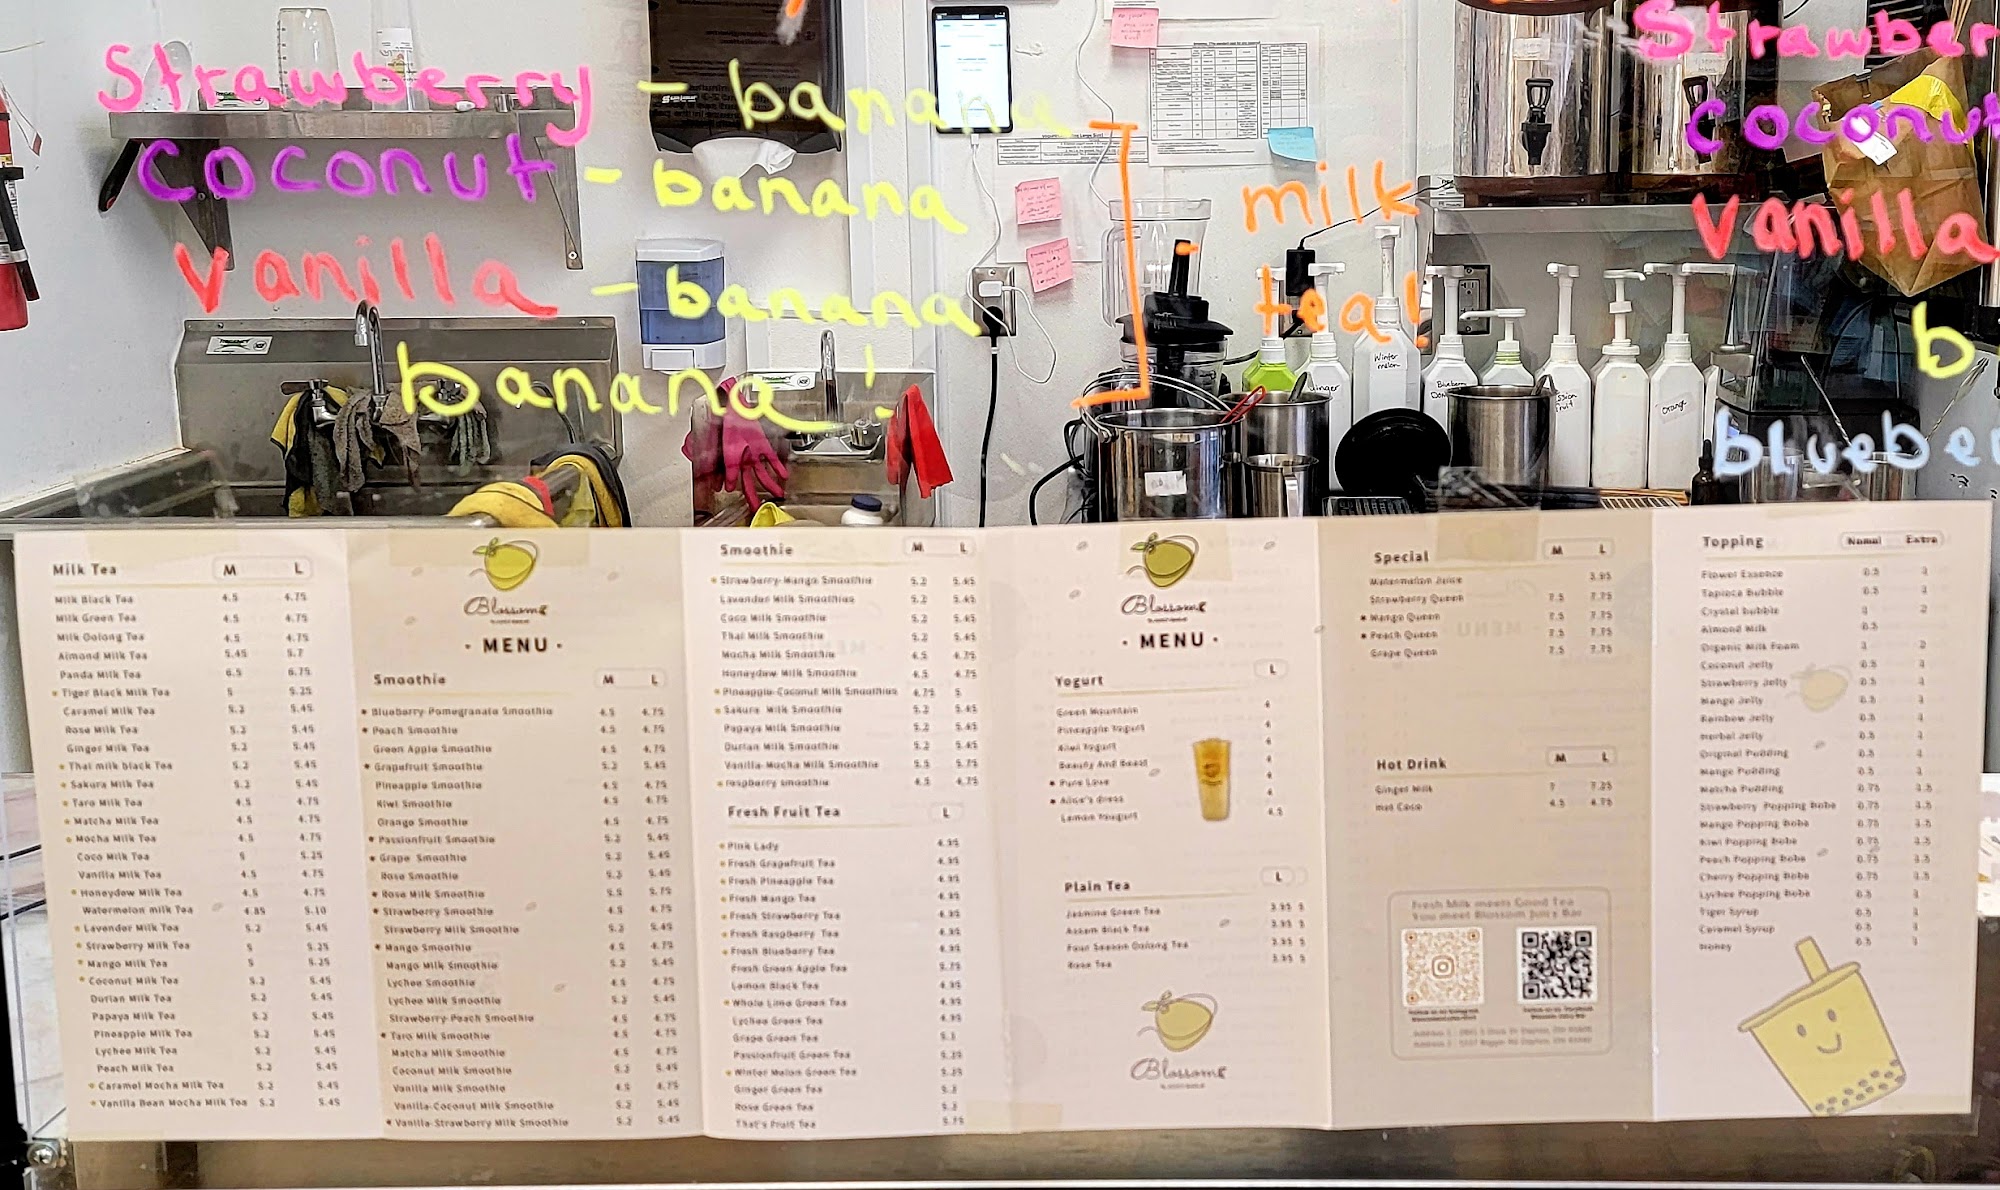 Strawberry - banana
coconut - banana
Vanilla - banana
banana!
milk
tea!
Strawber
coconut
Vanilla
b
blueber
Winter
melon
Orange
Milk Tea M L
Milk Black Tea 4.5 4.75
Milk Green Tea 4.5 4.75
Milk Oolong Tea 4.5 4.75
Almond Milk Tea 5.45 5.7
Panda Milk Tea 6.5 6.75
Tiger Black Milk Tea 5 5.25
Caramel Milk Tea 5.2 5.45
Rose Milk Tea 5.2 5.45
Ginger Milk Tea 5.2 5.45
Thai milk black Tea 5.2 5.45
Sakura Milk Tea 5.2 5.45
Taro Milk Tea 4.5 4.75
Matcha Milk Tea 4.5 4.75
Mocha Milk Tea 4.5 4.75
Coco Milk Tea 5 5.25
Vanilla Milk Tea 4.5 4.75
Honeydew Milk Tea 4.5 4.75
Watermelon milk Tea 4.85 5.10
Lavender Milk Tea 5.2 5.45
Strawberry Milk Tea 5 5.25
Mango Milk Tea 5 5.25
Coconut Milk Tea 5.2 5.45
Durian Milk Tea 5.2 5.45
Papaya Milk Tea 5.2 5.45
Pineapple Milk Tea 5.2 5.45
Lychee Milk Tea 5.2 5.45
Peach Milk Tea 5.2 5.45
Caramel Mocha Milk Tea 5.2 5.45
Vanilla Bean Mocha Milk Tea 5.2 5.45
Blossoms
· MENU ·
Smoothie M L
Blueberry-Pomegranate Smoothie 4.5 4.75
Peach Smoothie 4.5 4.75
Green Apple Smoothie 4.5 4.75
Grapefruit Smoothie 5.2 5.45
Pineapple Smoothie 4.5 4.75
Kiwi Smoothie 4.5 4.75
Orange Smoothie 4.5 4.75
Passionfruit Smoothie 5.2 5.45
Grape Smoothie 5.2 5.45
Rose Smoothie 5.2 5.45
Rose Milk Smoothie 5.5 5.75
Strawberry Smoothie 4.5 4.75
Strawberry Milk Smoothie 5.2 5.45
Mango Smoothie 4.5 4.75
Mango Milk Smoothie 5.2 5.45
Lychee Smoothie 4.5 4.75
Lychee Milk Smoothie 5.2 5.45
Strawberry-Peach Smoothie 4.5 4.75
Taro Milk Smoothie 4.5 4.75
Matcha Milk Smoothie 4.5 4.75
Coconut Milk Smoothie 5.2 5.45
Vanilla Milk Smoothie 4.5 4.75
Vanilla-Coconut Milk Smoothie 5.2 5.45
Vanilla-Strawberry Milk Smoothie 5.2 5.45
Smoothie M L
Strawberry-Mango Smoothie 5.2 5.45
Lavender Milk Smoothies 5.2 5.45
Coco Milk Smoothie 5.2 5.45
Thai Milk Smoothie 5.2 5.45
Mocha Milk Smoothie 4.5 4.75
Honeydew Milk Smoothie 4.5 4.75
Pineapple-Coconut Milk Smoothies 4.75 5
Sakura Milk Smoothie 5.2 5.45
Papaya Milk Smoothie 5.2 5.45
Durian Milk Smoothie 5.2 5.45
Vanilla-Mocha Milk Smoothie 5.5 5.75
raspberry smoothie 4.5 4.75
Fresh Fruit Tea L
Pink Lady 4.95
Fresh Grapefruit Tea 4.95
Fresh Pineapple Tea 4.95
Fresh Mango Tea 4.95
Fresh Strawberry Tea 4.95
Fresh Raspberry Tea 4.95
Fresh Blueberry Tea 4.95
Fresh Green Apple Tea 5.75
Lemon Black Tea 4.95
Whole Lime Green Tea 4.95
Lychee Green Tea 4.95
Grape Green Tea 5.2
Passionfruit Green Tea 5.25
Winter Melon Green Tea 5.25
Ginger Green Tea 5.2
Rose Green Tea 5.2
That's Fruit Tea 5.75
Blossoms
· MENU ·
Yogurt L
Green Mountain 6
Pineapple Yogurt 6
Kiwi Yogurt 6
Beauty And Beast 6
Pure Love 6
Alice's Dress 6
Lemon Yougurt 6.5
Plain Tea L
Jasmine Green Tea 3.95 5
Assam Black Tea 3.95 5
Four Season Oolong Tea 3.95 5
Rose Tea 3.95 5
Blossoms
Special M L
Watermelon Juice 5.95
Strawberry Queen 7.5 7.75
Mango Queen 7.5 7.75
Peach Queen 7.5 7.75
Grape Queen 7.5 7.75
Hot Drink M L
Ginger Milk 7 7.25
Hot Coco 4.5 4.75
Fresh Milk meets Good Tea
You meet Blossom Juicy Bar
Topping Nomal Extra
Flower Essence 0.5 1
Tapioca Bubble 0.5 1
Crystal bubble 1 2
Almond Milk 0.5
Organic Milk Foam 1 2
Coconut Jelly 0.5 1
Strawberry Jelly 0.5 1
Mango Jelly 0.5 1
Rainbow Jelly 0.5 1
Herbal Jelly 0.5 1
Original Pudding 0.5 1
Mango Pudding 0.5 1
Matcha Pudding 0.75 1.5
Strawberry Popping Boba 0.75 1.5
Mango Popping Boba 0.75 1.5
Kiwi Popping Boba 0.75 1.5
Peach Popping Boba 0.75 1.5
Cherry Popping Boba 0.75 1.5
Lychee Popping Boba 0.5 1
Tiger Syrup 0.5 1
Caramel Syrup 0.5 1
Honey 0.5 1